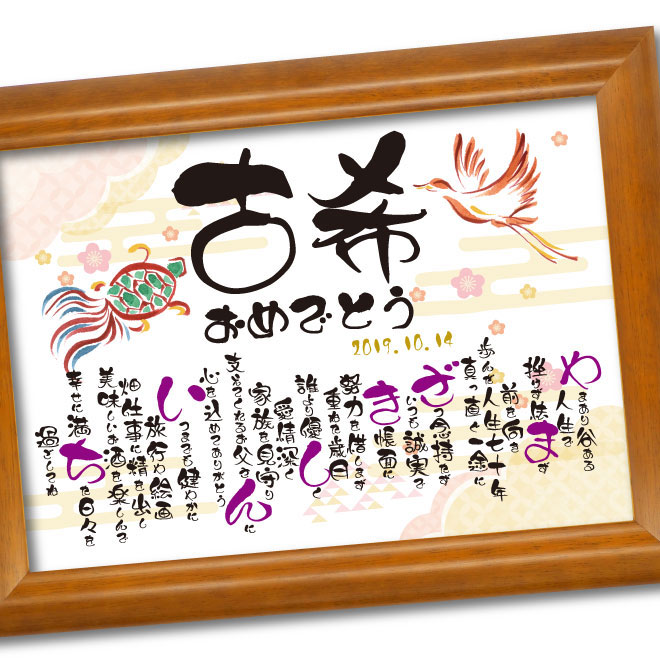 古希
おめでとう
2019.10.14
やまあり谷ある
人生で
挫けず怯まず
前を向き
歩んだ人生七十年
真っ直ぐ一途に
ざつ念持たず
いつも誠実で
き帳面に
努力を惜しまず
重ねた歳月
誰より優しく
愛情深く
家族を見守り
支えてくれるお父さんに
心を込めてありがとう
いつまでも健やかに
旅行や絵画
畑仕事に精を出し
美味しいお酒を楽しんで
幸せに満ちた日々を
過ごしてね